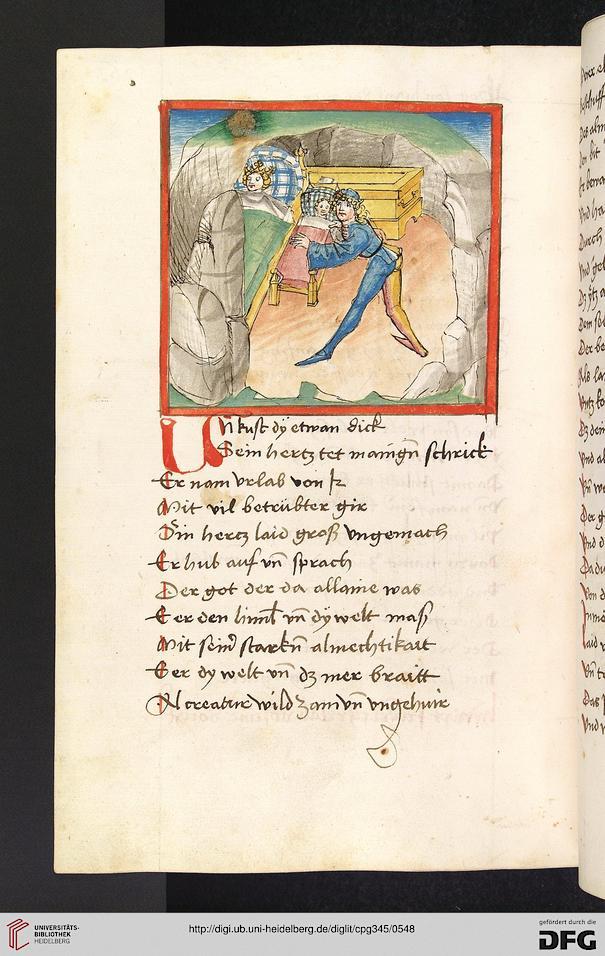 Vn kust dÿ etwan dick
Sein hertz tet maingn̄ schrick
Er nam vrlab von Ir
Mit vil betrübter gir
Sin hercz laid groß vngemach
Er hub auf vn̄ sprach
Der got der da allaine was
E er den himl vn̄ dÿ welt maß
Mit seiner starkn̄ almechtikait
E er dy welt vn̄ dz mer braitt
Al creatur wild zam vn̄ vngehuir
UNIVERSITÄTS-
BIBLIOTHEK
HEIDELBERG
http://digi.ub.uni-heidelberg.de/diglit/cpg345/0548
gefördert durch die
DFG